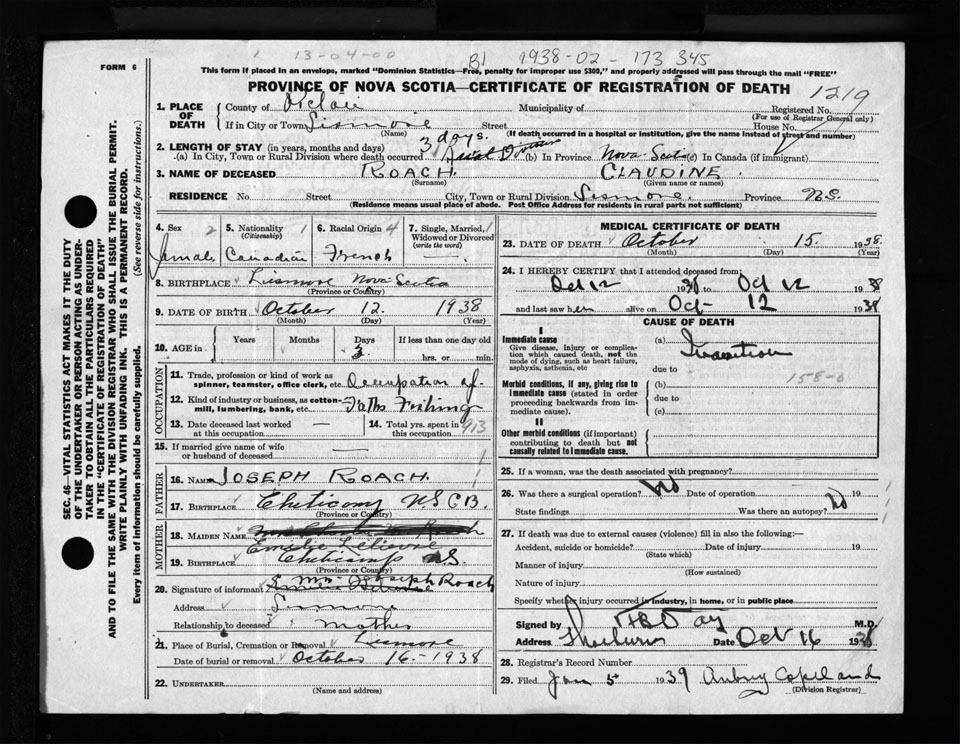 1 13-04-00 B1 1938-02-173 345
FORM 6
This form if placed in an envelope, marked "Dominion Statistics—Free, penalty for improper use $300," and properly addressed will pass through the mail "FREE"
PROVINCE OF NOVA SCOTIA—CERTIFICATE OF REGISTRATION OF DEATH
1219
1. PLACE OF DEATH County of Pictou Municipality of Registered No.
(For use of Registrar General only)
If in City or Town Lismore Street House No.
(Name) (If death occurred in a hospital or institution, give the name instead of street and number)
2. LENGTH OF STAY (in years, months and days) 3 days.
(a) In City, Town or Rural Division where death occurred (b) In Province Nova Scotia (c) In Canada (if immigrant)
3. NAME OF DECEASED ROACH. CLAUDINE.
(Surname) (Given name or names)
RESIDENCE No. Street City, Town or Rural Division Lismore. Province N.S.
(Residence means usual place of abode. Post Office Address for residents in rural parts not sufficient)
4. Sex 2 Female
5. Nationality (Citizenship) 1 Canadian
6. Racial Origin 4 French
7. Single, Married, Widowed or Divorced (write the word) —
8. BIRTHPLACE Lismore Nova Scotia
(Province or Country)
9. DATE OF BIRTH October 12. 1938
(Month) (Day) (Year)
10. AGE in Years Months Days If less than one day old
3 hrs. or min.
OCCUPATION
11. Trade, profession or kind of work as spinner, teamster, office clerk, etc. Occupation of
12. Kind of industry or business, as cotton-mill, lumbering, bank, etc. Faths Fishing
13. Date deceased last worked at this occupation —
14. Total yrs. spent in this occupation 913
15. If married give name of wife or husband of deceased —
FATHER
16. NAME JOSEPH ROACH.
17. BIRTHPLACE Cheticamp N.S C.B.
(Province or Country)
MOTHER
18. MAIDEN NAME
Emelie Lelievre
19. BIRTHPLACE Cheticamp N.S.
(Province or Country)
20. Signature of informant Mrs Joseph Roach
Address Lismore
Relationship to deceased mother
21. Place of Burial, Cremation or Removal Lismore
Date of burial or removal October 16.-1938
22. UNDERTAKER
(Name and address)
MEDICAL CERTIFICATE OF DEATH
23. DATE OF DEATH October 15. 1938.
(Month) (Day) (Year)
24. I HEREBY CERTIFY that I attended deceased from:
Oct 12 1938 to Oct 12 1938
and last saw her alive on Oct- 12 1938
CAUSE OF DEATH
I
Immediate cause
Give disease, injury or complication which caused death, not the mode of dying, such as heart failure, asphyxia, asthenia, etc
(a) Inanition
due to 158-0
Morbid conditions, if any, giving rise to immediate cause (stated in order proceeding backwards from immediate cause).
(b)
due to
(c)
II
Other morbid conditions (if important) contributing to death but not causally related to immediate cause.
25. If a woman, was the death associated with pregnancy?
26. Was there a surgical operation? No Date of operation 19
State findings Was there an autopsy? No
27. If death was due to external causes (violence) fill in also the following:—
Accident, suicide or homicide? Date of injury 19
(State which)
Manner of injury
(How sustained)
Nature of injury
Specify whether injury occurred in industry, in home, or in public place
Signed by M.D.
Address Date Oct 16 1938
28. Registrar's Record Number
29. Filed Jan 5th 1939 Aubrey Copeland
(Division Registrar)
SEC. 46—VITAL STATISTICS ACT MAKES IT THE DUTY
OF THE UNDERTAKER OR PERSON ACTING AS UNDERTAKER TO OBTAIN ALL THE PARTICULARS REQUIRED
IN THE "CERTIFICATE OF REGISTRATION OF DEATH"
AND TO FILE THE SAME WITH THE DIVISION REGISTRAR WHO SHALL ISSUE THE BURIAL PERMIT.
WRITE PLAINLY WITH UNFADING INK. THIS IS A PERMANENT RECORD.
Every item of information should be carefully supplied. (See reverse side for instructions.)